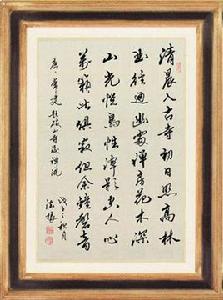 清晨入古寺初日照高林
曲徑通幽處禪房花木深
山光悅鳥性潭影空人心
萬籟此俱寂但餘鐘磬音
唐常建題破山寺後禪院
秋月